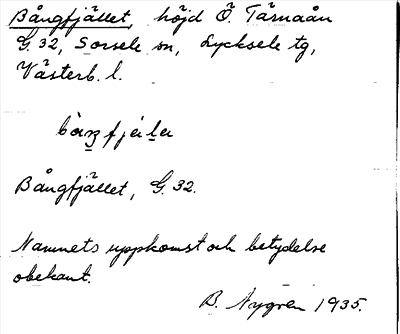 Bångfjället, höjd Ö. Tärnaån
G 32, Sorsele sn, Lycksele tg,
Västerb. l.
Bångfjället, G. 32.
Namnets uppkomst och betydelse
obekant.
B. Nygren 1935.